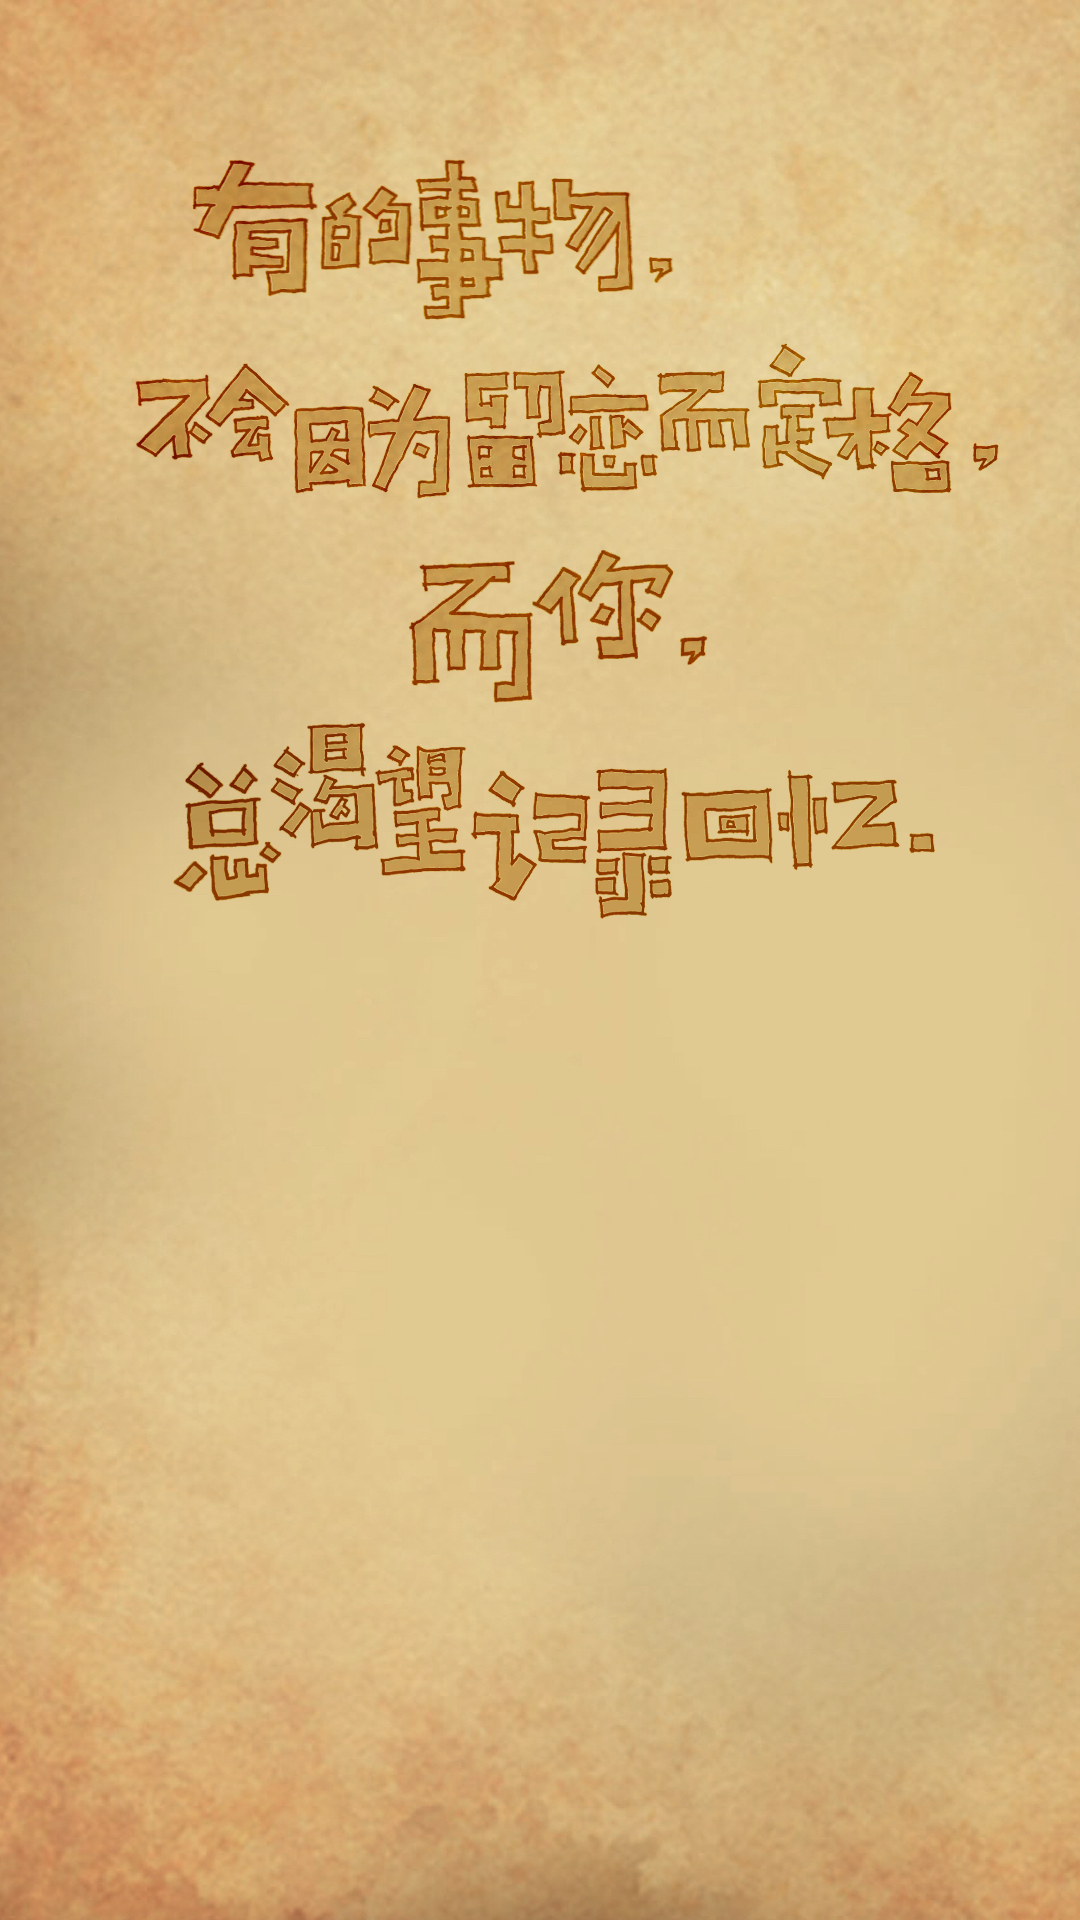 有的事物，
不会因为留恋而定格，
而你，
总渴望记录回忆.